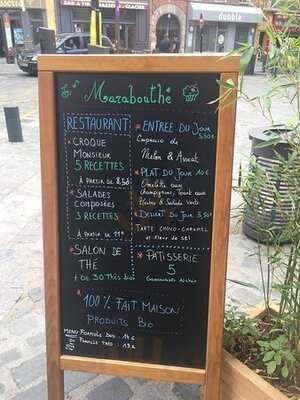 BAR À THÉ
double
Marabouthé
RESTAURANT
* CROQUE
MONSIEUR
5 RECETTES
À PARTIR DE 8,50
* SALADES
Composées
3 RECETTES
À PARTIR DE 11€
* SALON DE
THÉ
+ DE 30 THÉS bio
* ENTREE DU JOUR
5,50€
Melon & Avocat
* PLAT DU JOUR 10€
Omelette aux
champignons, tout aux
& Salade Verte
* DESSERT DU JOUR 3,50€
TARTE CHOCO-CARAMEL
et fleur de sel
* PATISSERIE
5
* 100% FAIT MAISON
PRODUITS Bio
MENU FORMULE DUO : 14€
FORMULE TRIO : 19€